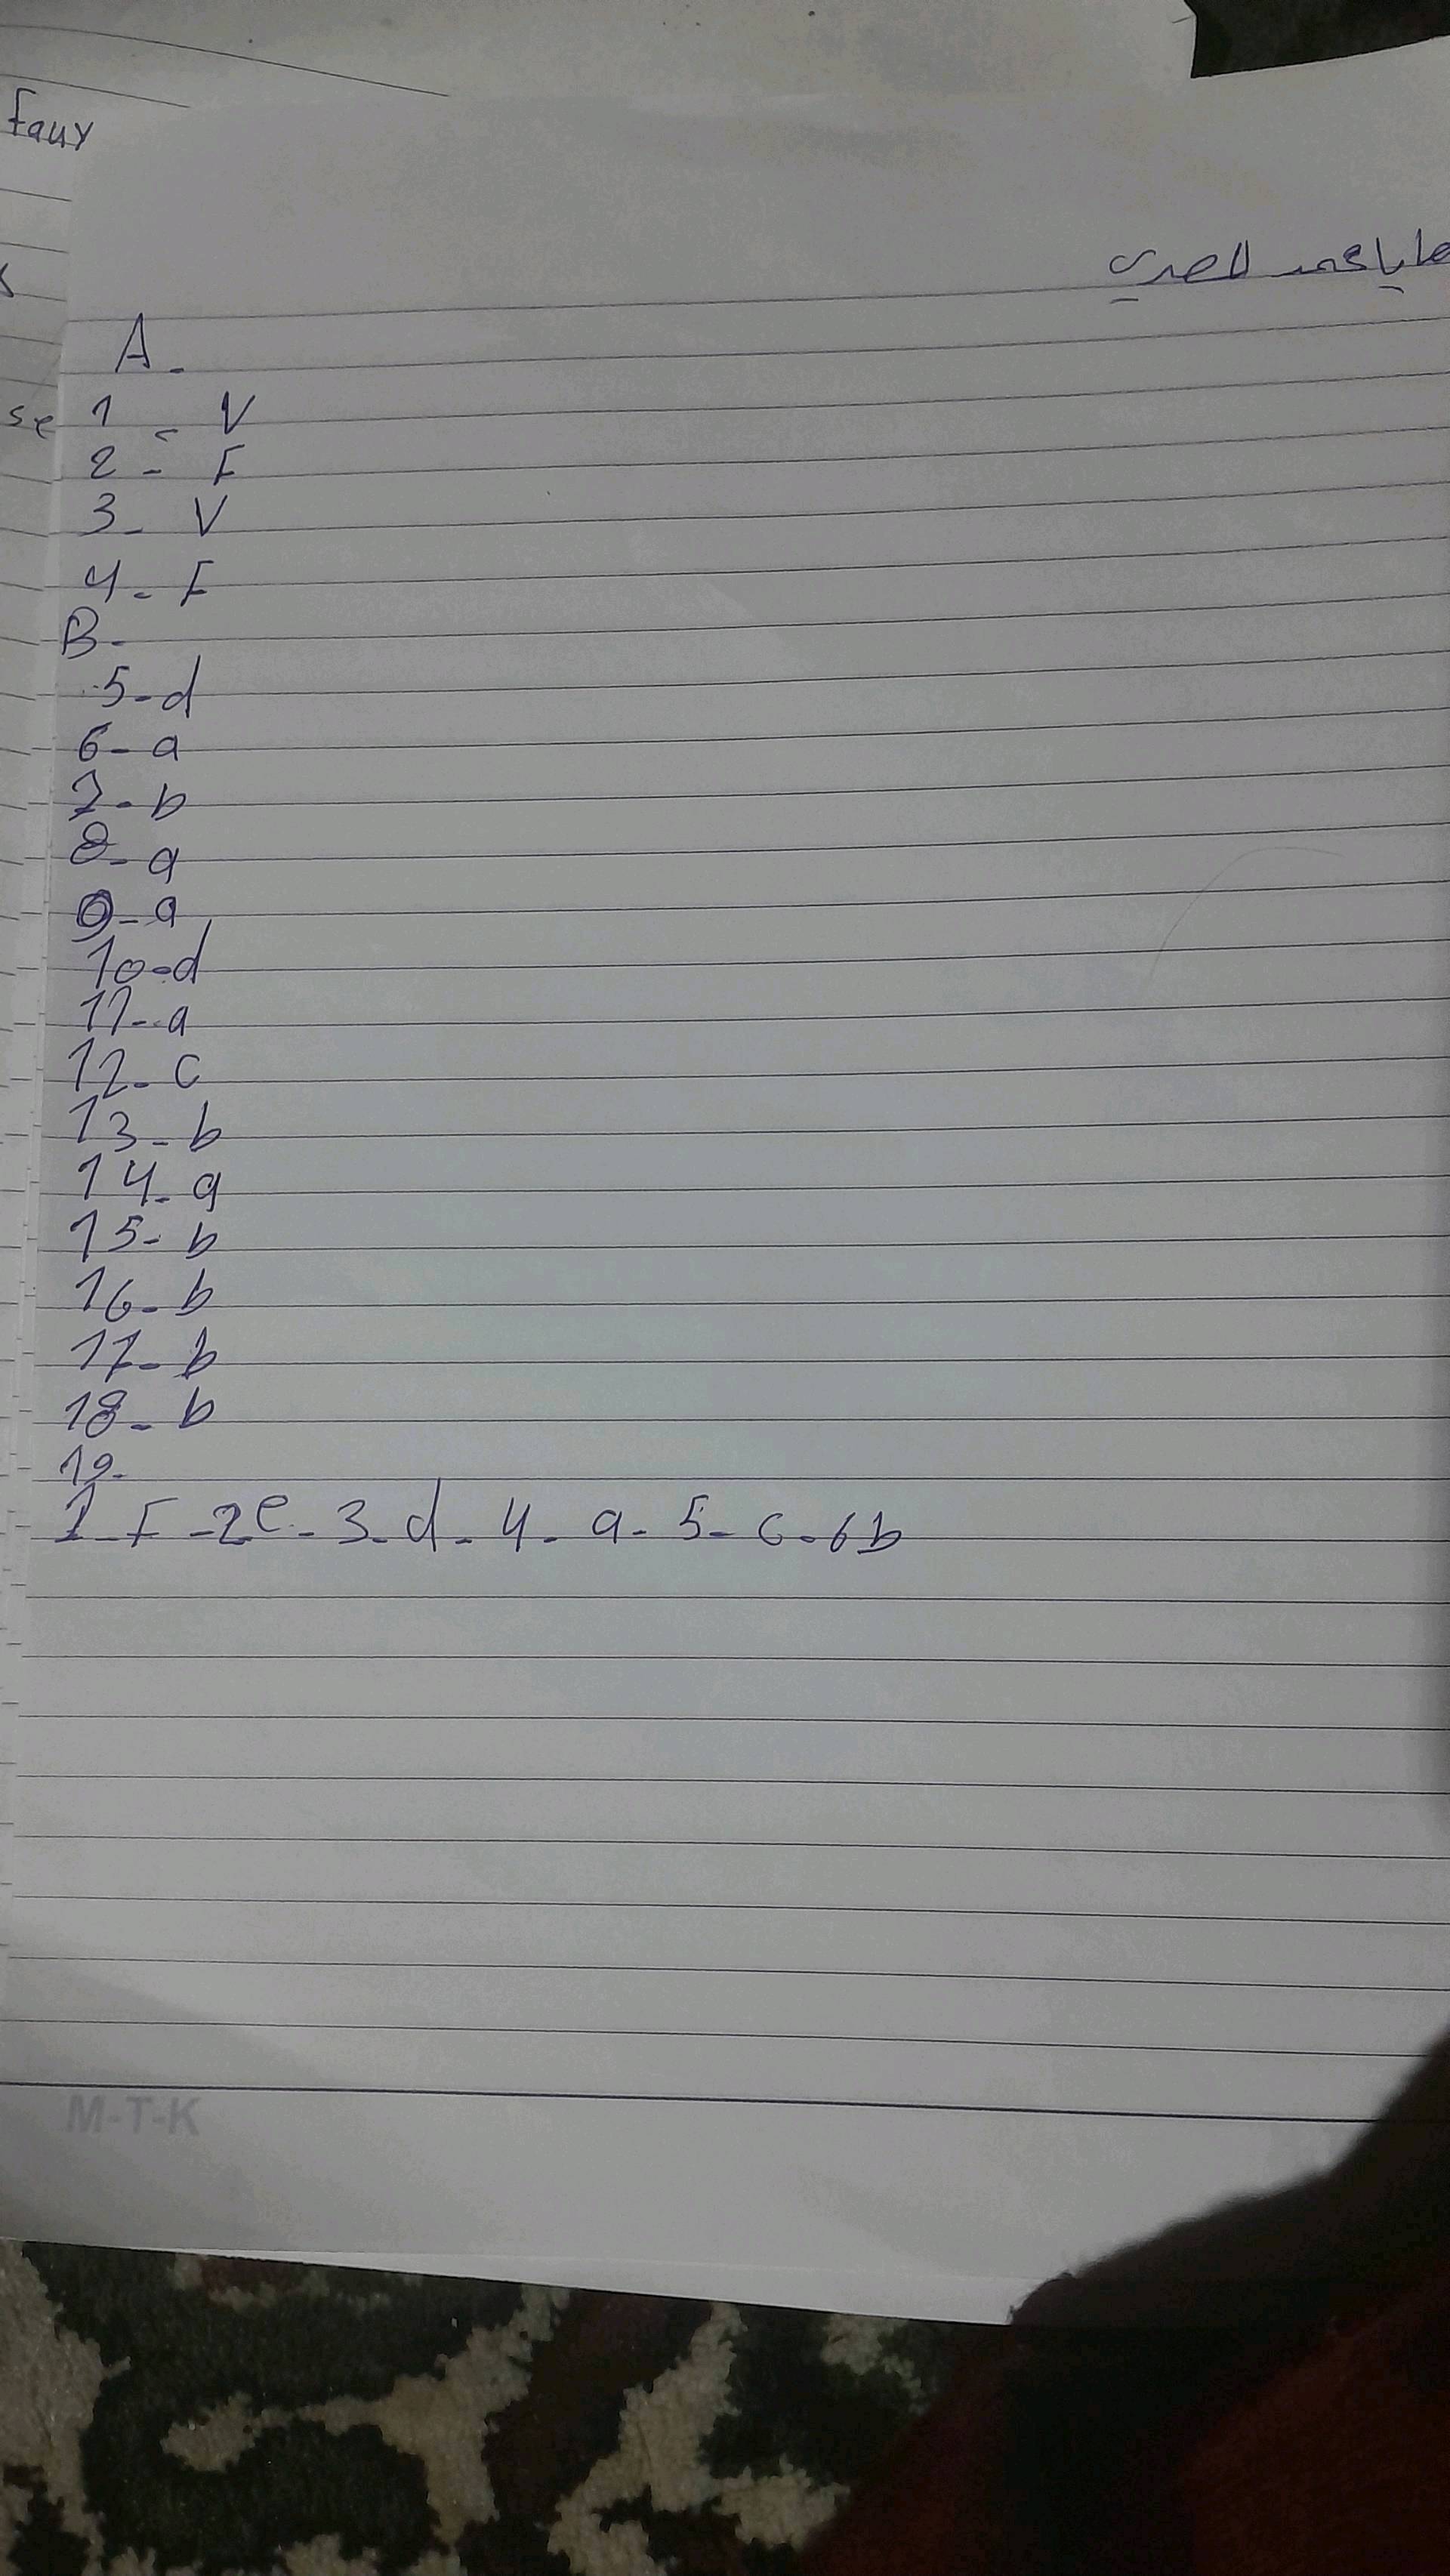 Faux
المصري
se
A-
1- V
2- F
3- V
4- F
B-
5-d
6-a
7-b
8-a
9-a
10-d
11-a
12-c
13-b
14-a
15-b
16-b
17-b
18-b
19-
1-F-2e-3-d-4-a-5-c-6b
M-T-K